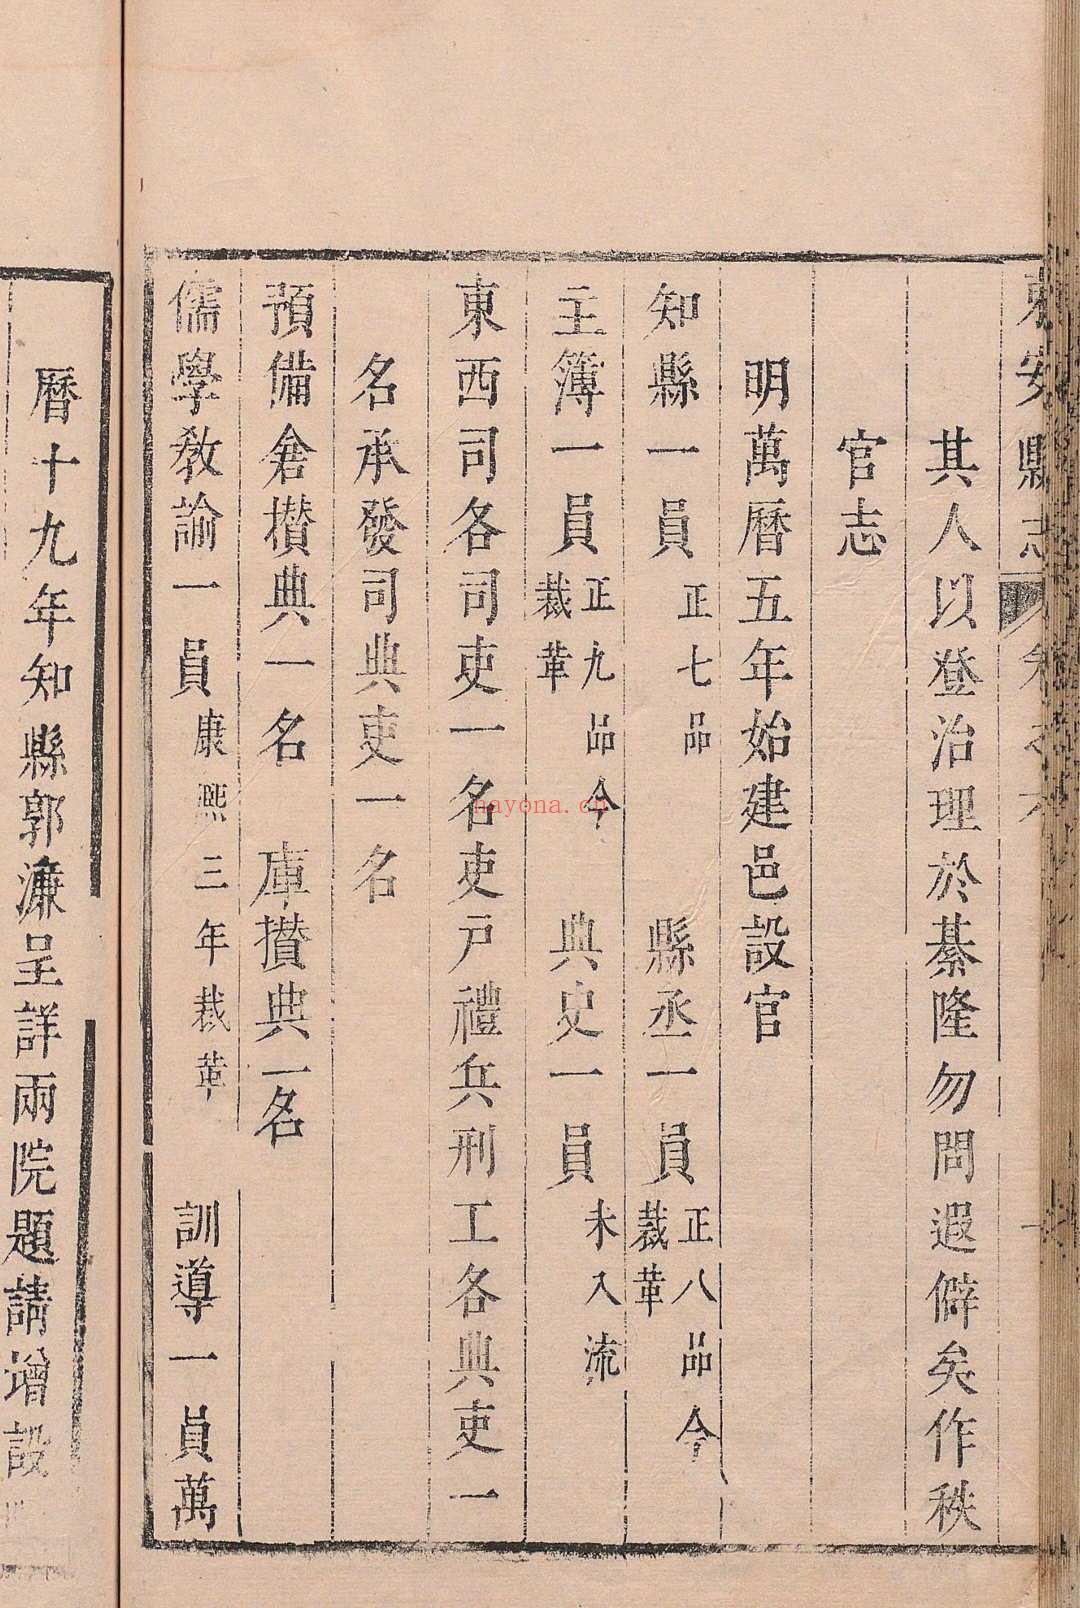 東安縣志
卷之六
其人以登治理於綦隆勿問遐僻矣作秩
官志
明萬曆五年始建邑設官
知縣一員正七品 縣丞一員正八品今裁革
主簿一員正九品今裁革 典史一員未入流
東西司各司吏一名吏戶禮兵刑工各典吏一
名承發司典吏一名
預備倉攅典一名 庫攢典一名
儒學教諭一員康熙三年裁革 訓導一員萬
曆十九年知縣郭濂呈詳兩院題請增設
nayona.cn